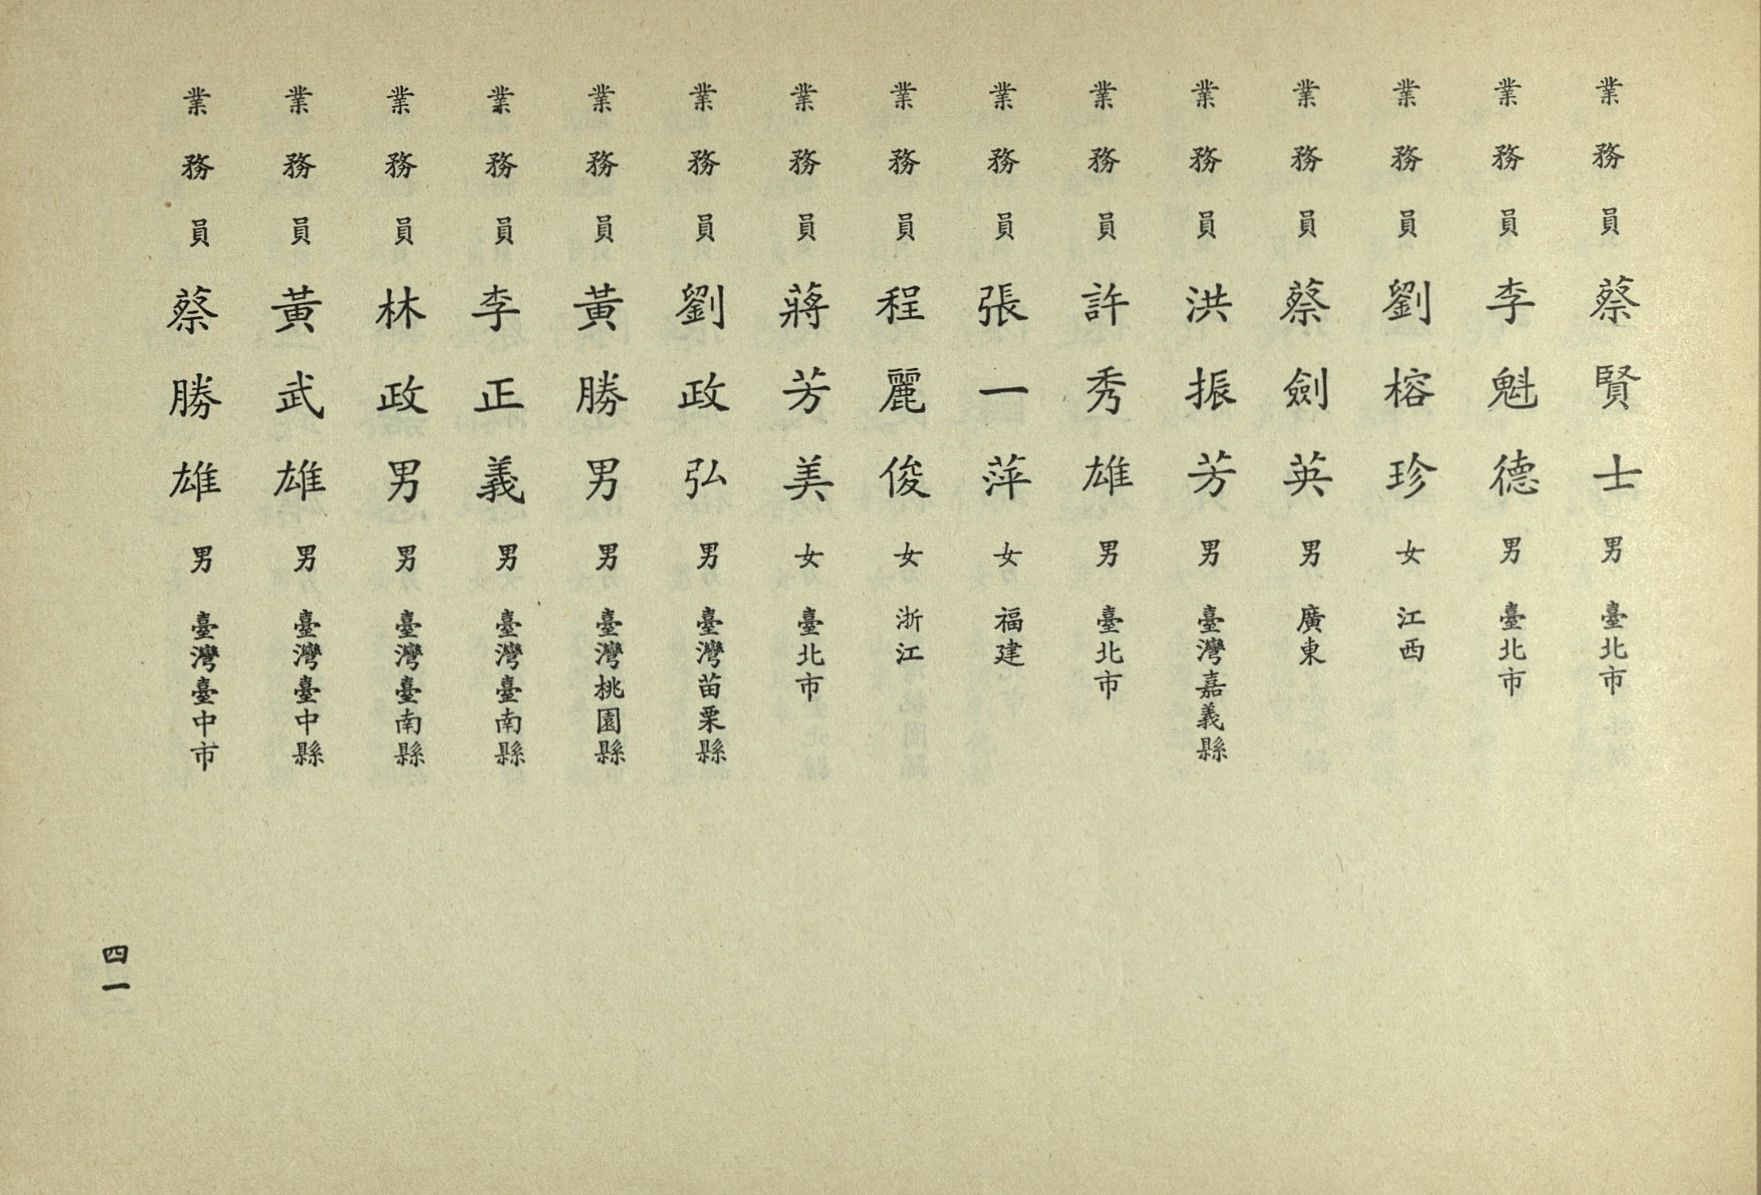 業務員蔡賢士男臺北市
業務員李魁德男臺北市
業務員劉榕珍女江西
業務員蔡劍英男廣東
業務員洪振芳男臺灣嘉義縣
業務員許秀雄男臺北市
業務員張一萍女福建
業務員程麗俊女浙江
業務員蔣芳美女臺北市
業務員劉政弘男臺灣苗栗縣
業務員黃勝男男臺灣桃園縣
業務員李正義男臺灣臺南縣
業務員林政男男臺灣臺南縣
業務員黃武雄男臺灣臺中縣
業務員蔡勝雄男臺灣臺中市
四一